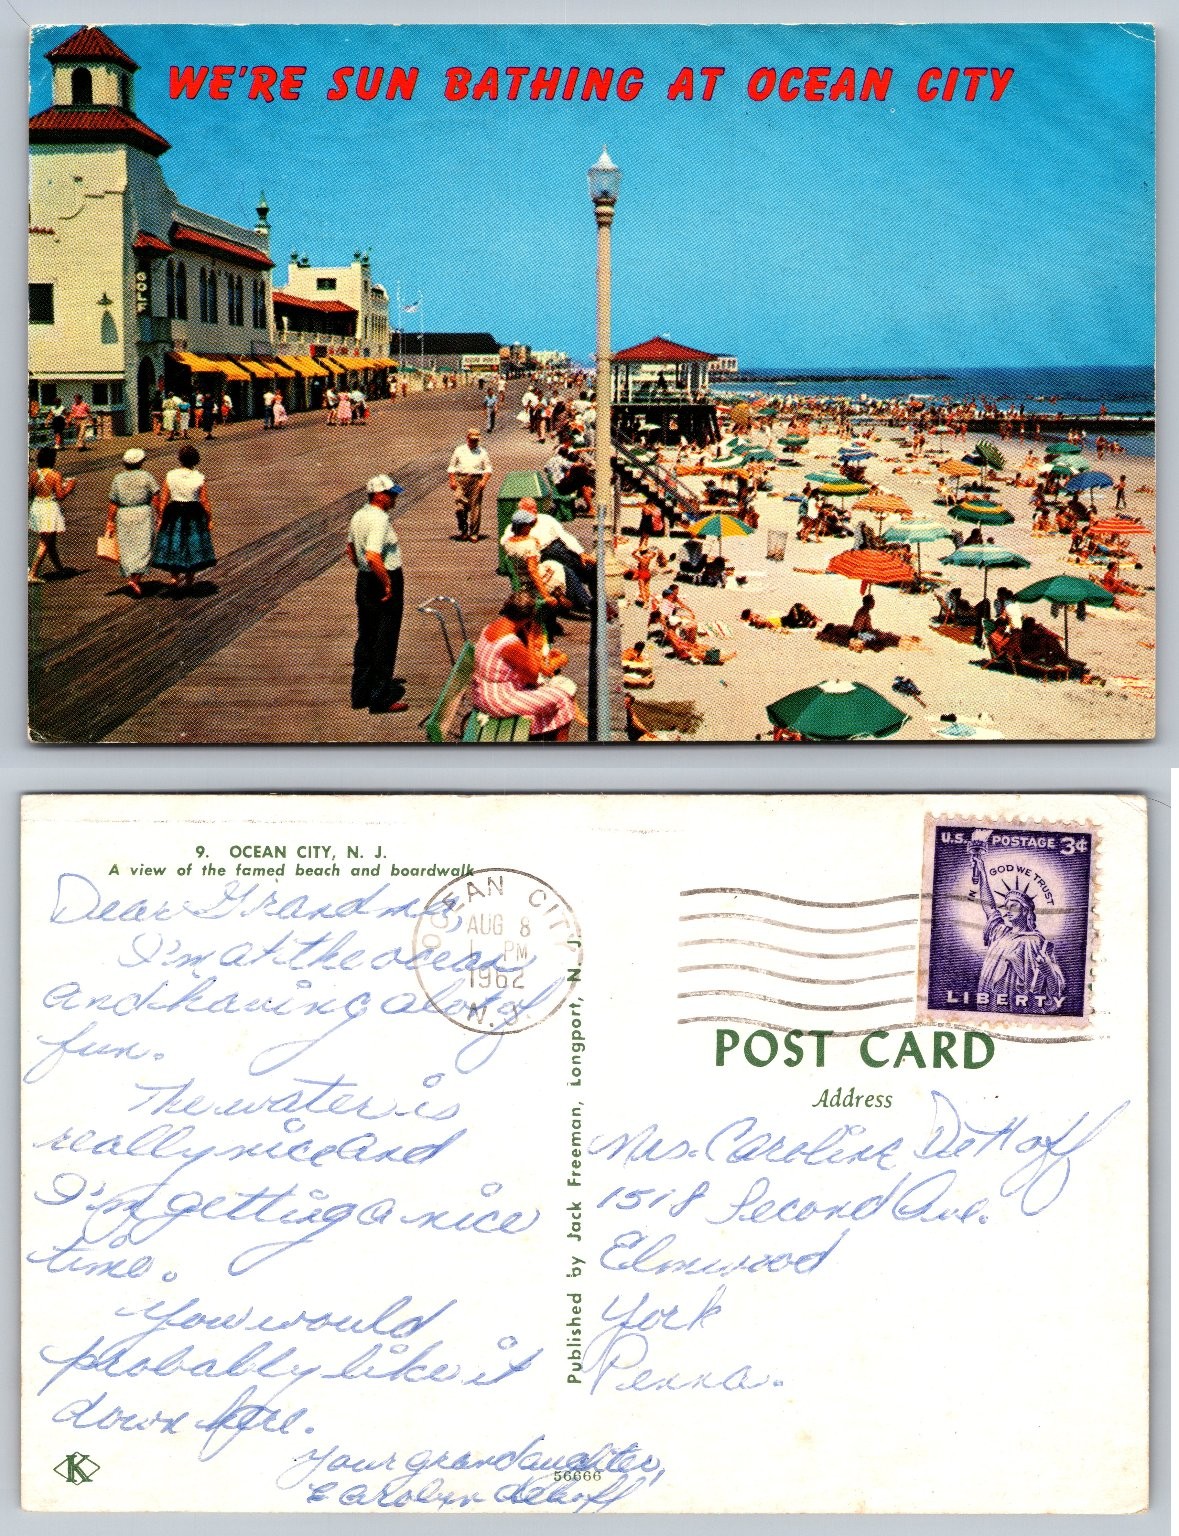 WE'RE SUN BATHING AT OCEAN CITY
GOLF
9. OCEAN CITY, N. J.
A view of the famed beach and boardwalk
Dear Grandma,
I'm at the ocean
and having a lot of
fun.
The water is
really nice and
I'm getting a nice
time.
You would
probably like it
down here.
Your grandaughter,
Carolyn Dehoff
K
56666
OCEAN CITY
AUG 8
1 PM
1962
N.J.
Published by Jack Freeman, Longport, N. J.
U.S. POSTAGE 3¢
IN GOD WE TRUST
LIBERTY
POST CARD
Address
Mrs. Caroline DeHoff
1518 Second Ave.
Elmwood
York
Penna.